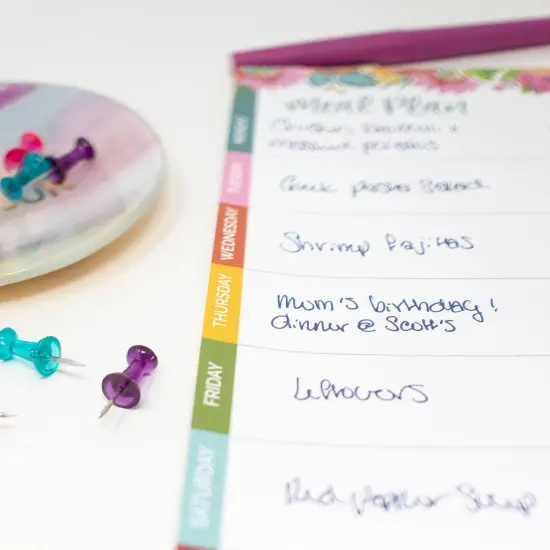 Meal Plan
MONDAY
Chicken, broccoli +
mashed potatoes
TUESDAY
Greek pasta salad
WEDNESDAY
Shrimp fajitas
THURSDAY
Mom's birthday!
dinner @ Scott's
FRIDAY
Leftovers
SATURDAY
Red pepper Soup